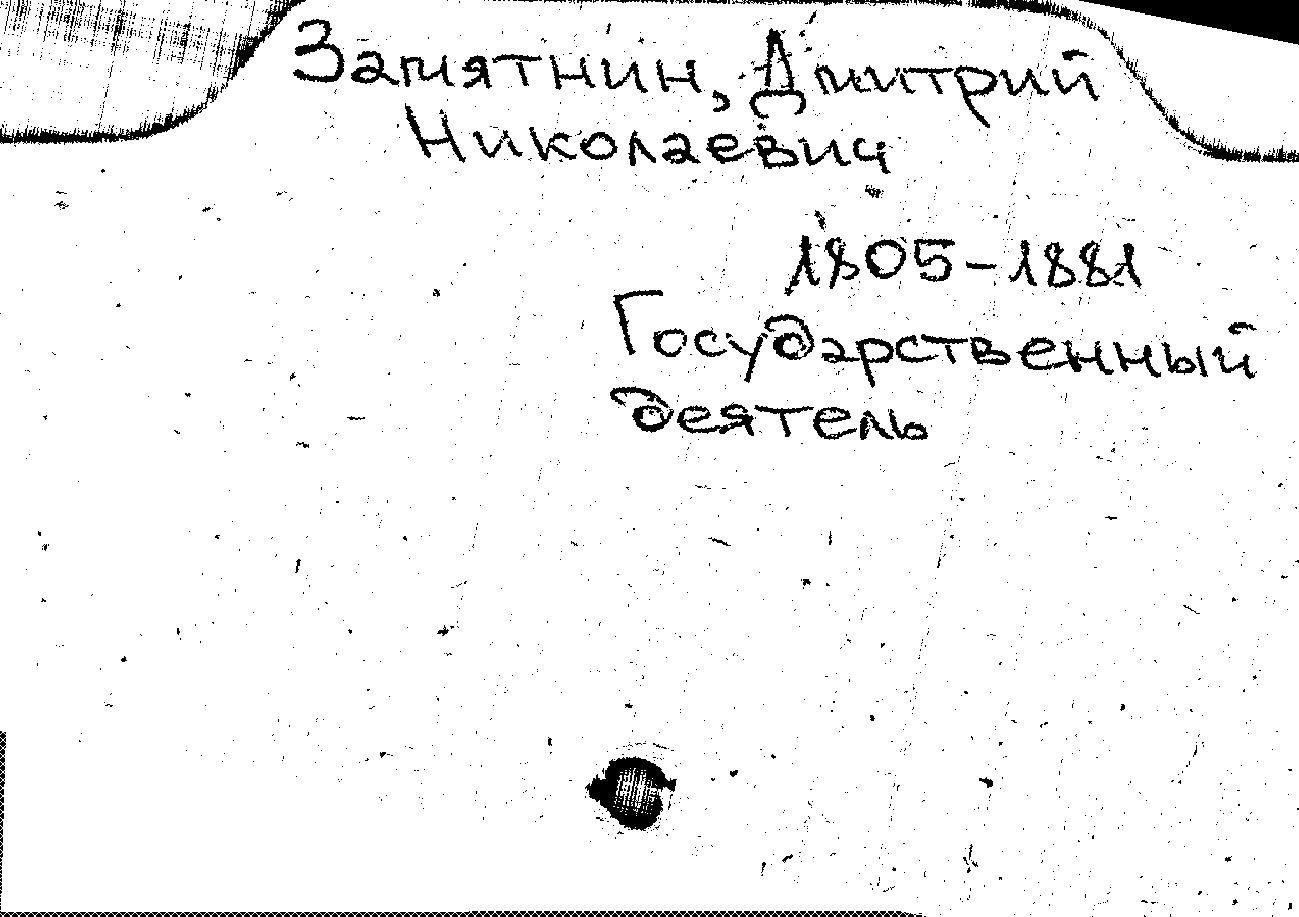 Замятнин, Дмитрий
Николаевич
1805-1881
Государственный
деятель